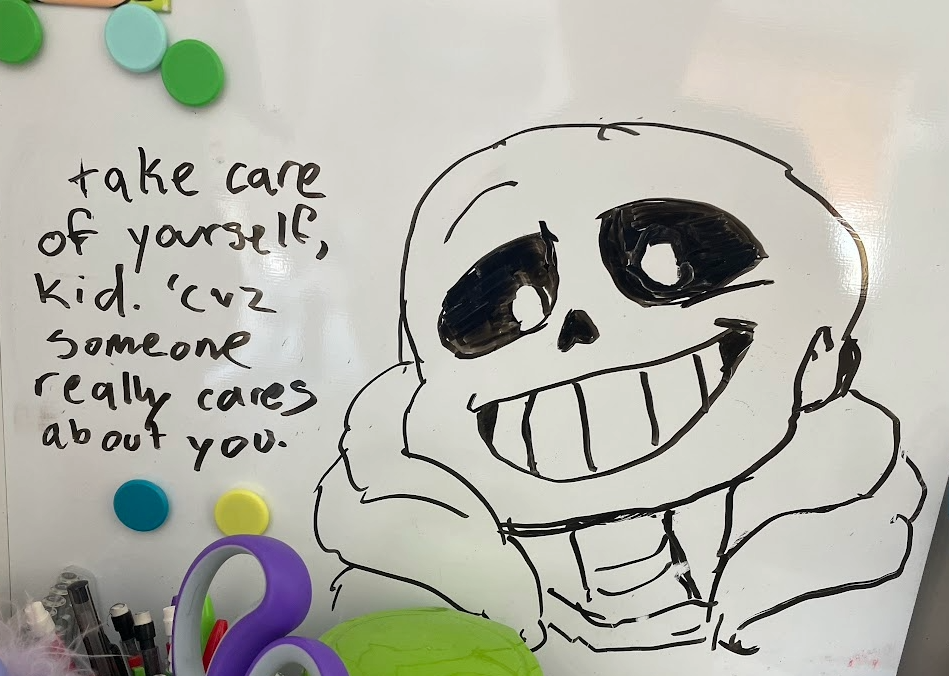 take care
of yourself,
kid. 'cuz
someone
really cares
about you.